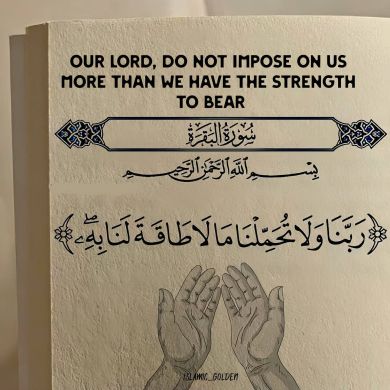 OUR LORD, DO NOT IMPOSE ON US
MORE THAN WE HAVE THE STRENGTH
TO BEAR
سُورَةُ البَقَرَةِ
بِسْمِ اللَّهِ الرَّحْمَٰنِ الرَّحِيمِ
رَبَّنَا وَلَا تُحَمِّلْنَا مَا لَا طَاقَةَ لَنَا بِهِۦۖ
ISLAMIC_GOLDEN